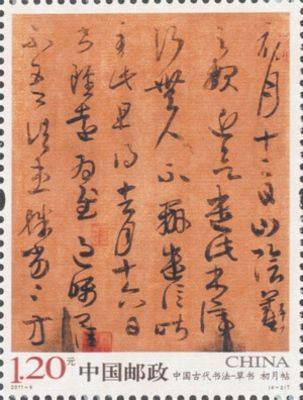 初月十二日山陰羲
之報近欲遣此書停
行無人不辦遣信昨
至此且得去月十六日
書雖遠為慰過囑卿佳
不吾諸患殊劣〻方
CHINA
1.20元 中国邮政 中国古代书法-草书 初月帖
2011-6 (4-2)T